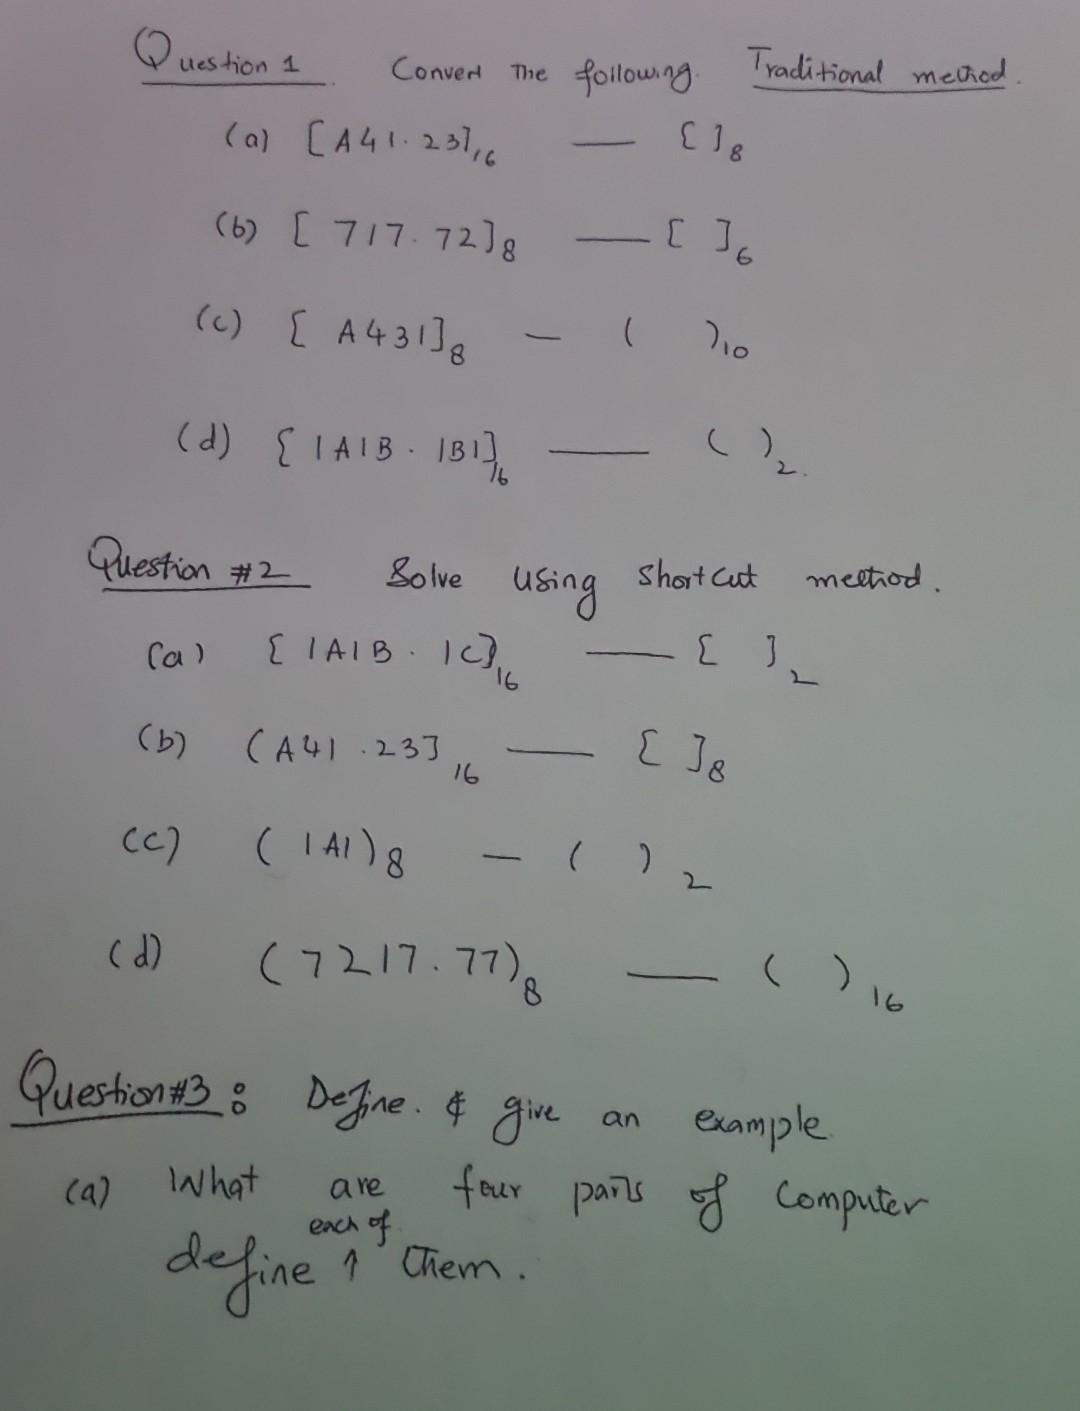 Question 1 Convert The following. Traditional method.
(a) [A41.23]16 — [ ]8
(b) [ 717.72]8 — [ ]6
(c) [ A431]8 – ( )10
(d) [ 1A1B . 1B1]16 — ( )2.
Question #2 Solve Using Shortcut method.
(a) [ 1A1B . 1C]16 — [ ]2
(b) (A41 .23]16 — [ ]8
(c) ( 1A1)8 – ( )2
(d) (7217.77)8 — ( )16
Question#3 : Define. & give an example.
(a) What are four parts of Computer
each of
define ↑ them.